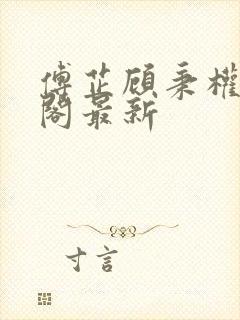 傅芷顾秉权
阁最新
寸言